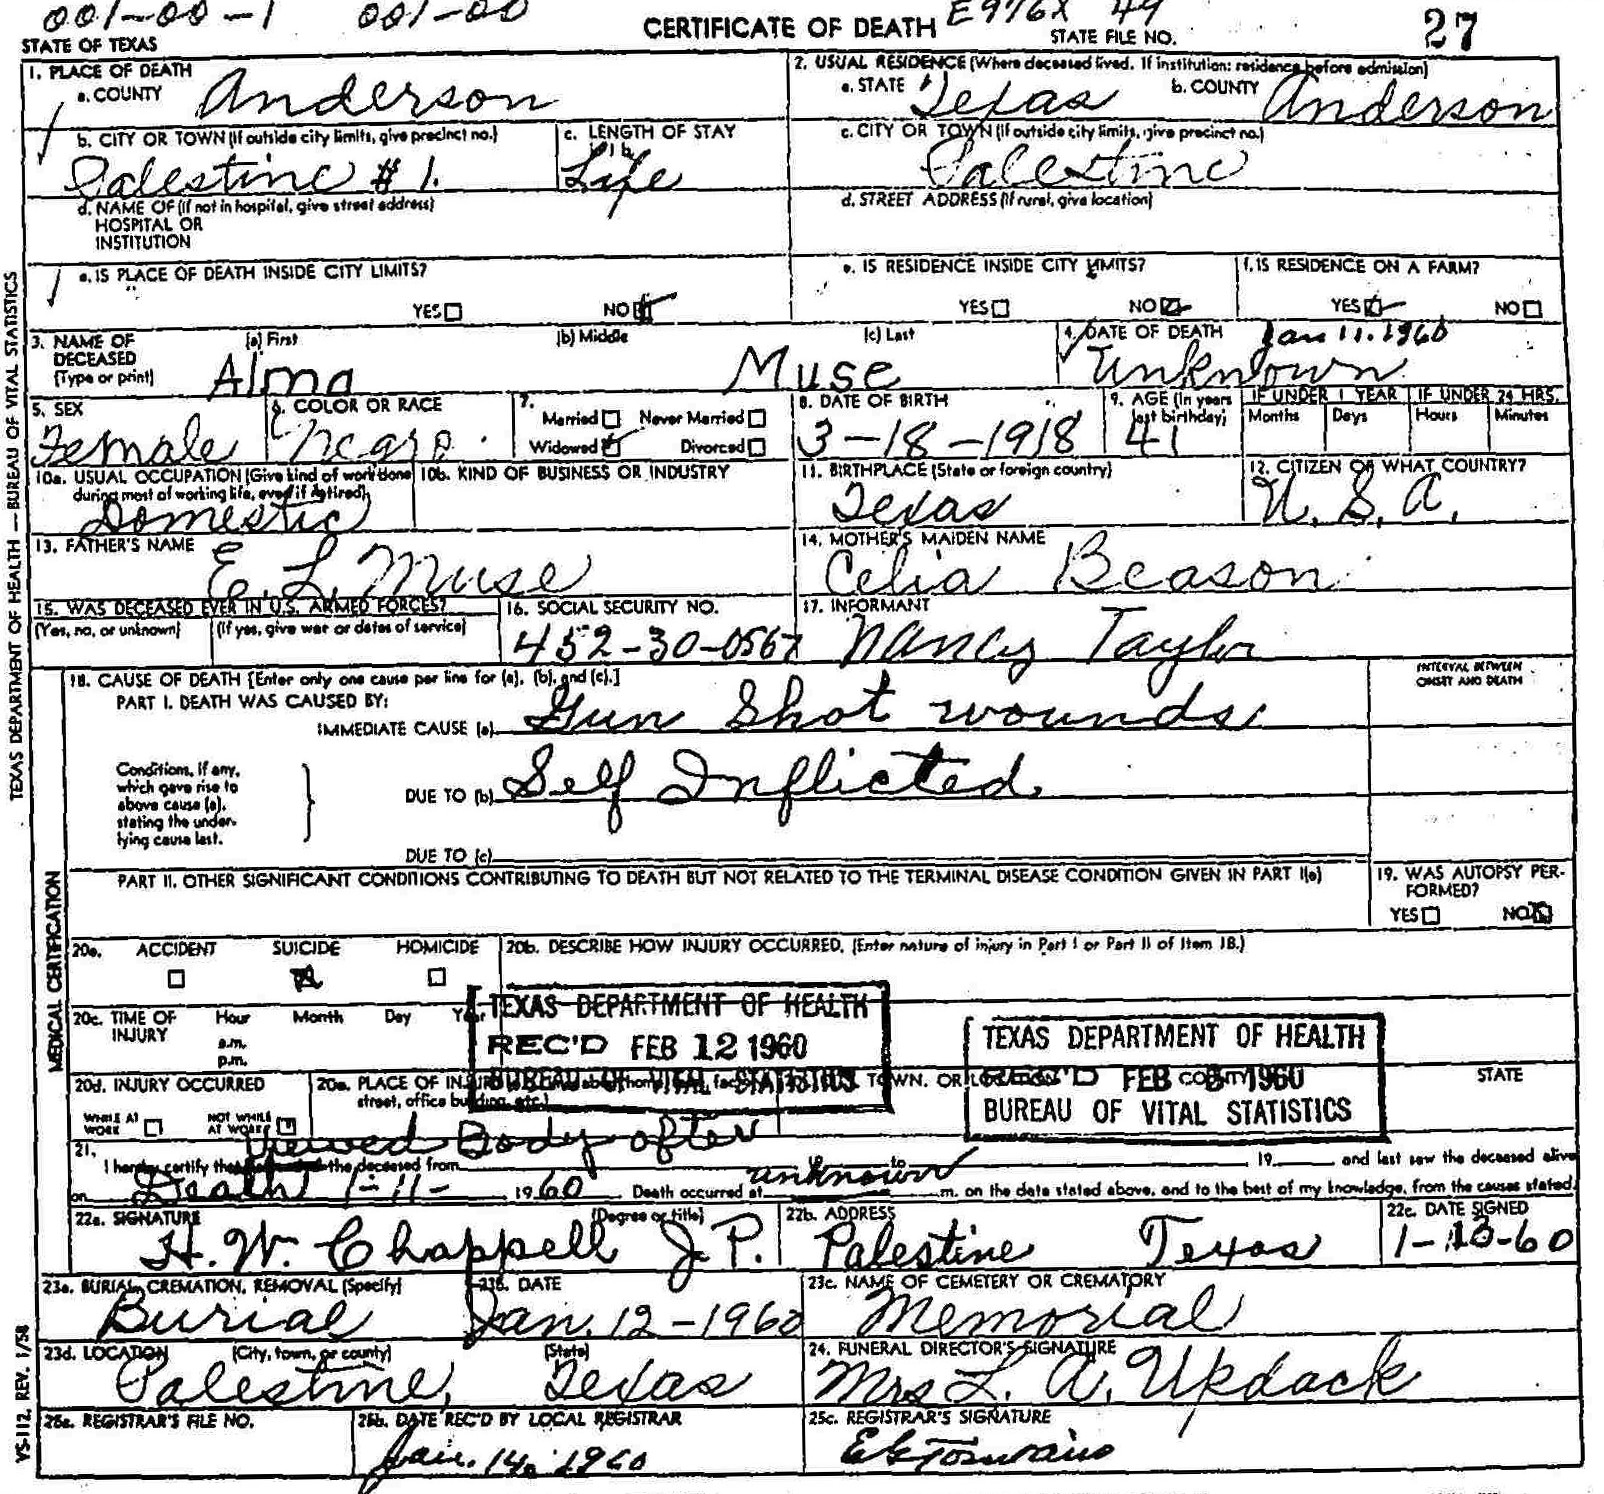 001-00-1 001-00 CERTIFICATE OF DEATH E976X 49
STATE OF TEXAS STATE FILE NO. 27
1. PLACE OF DEATH
a. COUNTY Anderson
2. USUAL RESIDENCE (Where deceased lived. If institution: residence before admission)
a. STATE Texas b. COUNTY Anderson
b. CITY OR TOWN (If outside city limits, give precinct no.)
Palestine # 1.
c. LENGTH OF STAY
Life
c. CITY OR TOWN (If outside city limits, give precinct no.)
Palestine
d. NAME OF (If not in hospital, give street address)
HOSPITAL OR
INSTITUTION
d. STREET ADDRESS (If rural, give location)
e. IS PLACE OF DEATH INSIDE CITY LIMITS?
YES NO
e. IS RESIDENCE INSIDE CITY LIMITS?
YES NO
f. IS RESIDENCE ON A FARM?
YES NO
3. NAME OF
DECEASED
(Type or print)
(a) First (b) Middle (c) Last
Alma Muse
4. DATE OF DEATH Jan 11. 1960
Unknown
5. SEX
Female
6. COLOR OR RACE
Negro
7.
Married Never Married
Widowed Divorced
8. DATE OF BIRTH
3-18-1918
9. AGE (In years
last birthday)
41
IF UNDER 1 YEAR
Months Days
IF UNDER 24 HRS.
Hours Minutes
10a. USUAL OCCUPATION (Give kind of work done
during most of working life, even if retired)
Domestic
10b. KIND OF BUSINESS OR INDUSTRY
11. BIRTHPLACE (State or foreign country)
Texas
12. CITIZEN OF WHAT COUNTRY?
U. S. A.
13. FATHER'S NAME
E. L. Muse
14. MOTHER'S MAIDEN NAME
Celia Beason
15. WAS DECEASED EVER IN U.S. ARMED FORCES?
(Yes, no, or unknown) (If yes, give war or dates of service)
16. SOCIAL SECURITY NO.
452-30-0567
17. INFORMANT
Nancy Taylor
18. CAUSE OF DEATH [Enter only one cause per line for (a), (b), and (c).]
PART I. DEATH WAS CAUSED BY:
IMMEDIATE CAUSE (a) Gun Shot wounds
INTERVAL BETWEEN
ONSET AND DEATH
Conditions, if any,
which gave rise to
above cause (a),
stating the under-
lying cause last.
DUE TO (b) Self Inflicted
DUE TO (c)
PART II. OTHER SIGNIFICANT CONDITIONS CONTRIBUTING TO DEATH BUT NOT RELATED TO THE TERMINAL DISEASE CONDITION GIVEN IN PART I(a)
19. WAS AUTOPSY PER-
FORMED?
YES NO
20a. ACCIDENT SUICIDE HOMICIDE
20b. DESCRIBE HOW INJURY OCCURRED. (Enter nature of injury in Part I or Part II of Item 18.)
20c. TIME OF
INJURY
Hour Month Day Year
a.m.
p.m.
TEXAS DEPARTMENT OF HEALTH
REC'D FEB 12 1960
BUREAU OF VITAL STATISTICS
TEXAS DEPARTMENT OF HEALTH
REC'D FEB 8 1960
BUREAU OF VITAL STATISTICS
20d. INJURY OCCURRED
WHILE AT
WORK
NOT WHILE
AT WORK
20e. PLACE OF INJURY
street, office building, etc.)
TOWN, OR LOCATION COUNTY STATE
Viewed Body after
21. I hereby certify that the deceased from to 19 and last saw the deceased alive
on Death 1-11- 1960 Death occurred at unknown m. on the date stated above, and to the best of my knowledge, from the causes stated.
22a. SIGNATURE (Degree or title)
H. W. Chappell J. P.
22b. ADDRESS
Palestine Texas
22c. DATE SIGNED
1-13-60
23a. BURIAL, CREMATION, REMOVAL (Specify)
Burial
23b. DATE
Jan. 12-1960
23c. NAME OF CEMETERY OR CREMATORY
Memorial
23d. LOCATION (City, town, or county) (State)
Palestine, Texas
24. FUNERAL DIRECTOR'S SIGNATURE
Mrs L. A. Updack
25a. REGISTRAR'S FILE NO.
25b. DATE REC'D BY LOCAL REGISTRAR
Jan. 14, 1960
25c. REGISTRAR'S SIGNATURE
TEXAS DEPARTMENT OF HEALTH — BUREAU OF VITAL STATISTICS
MEDICAL CERTIFICATION
VS-112, REV. 1/58